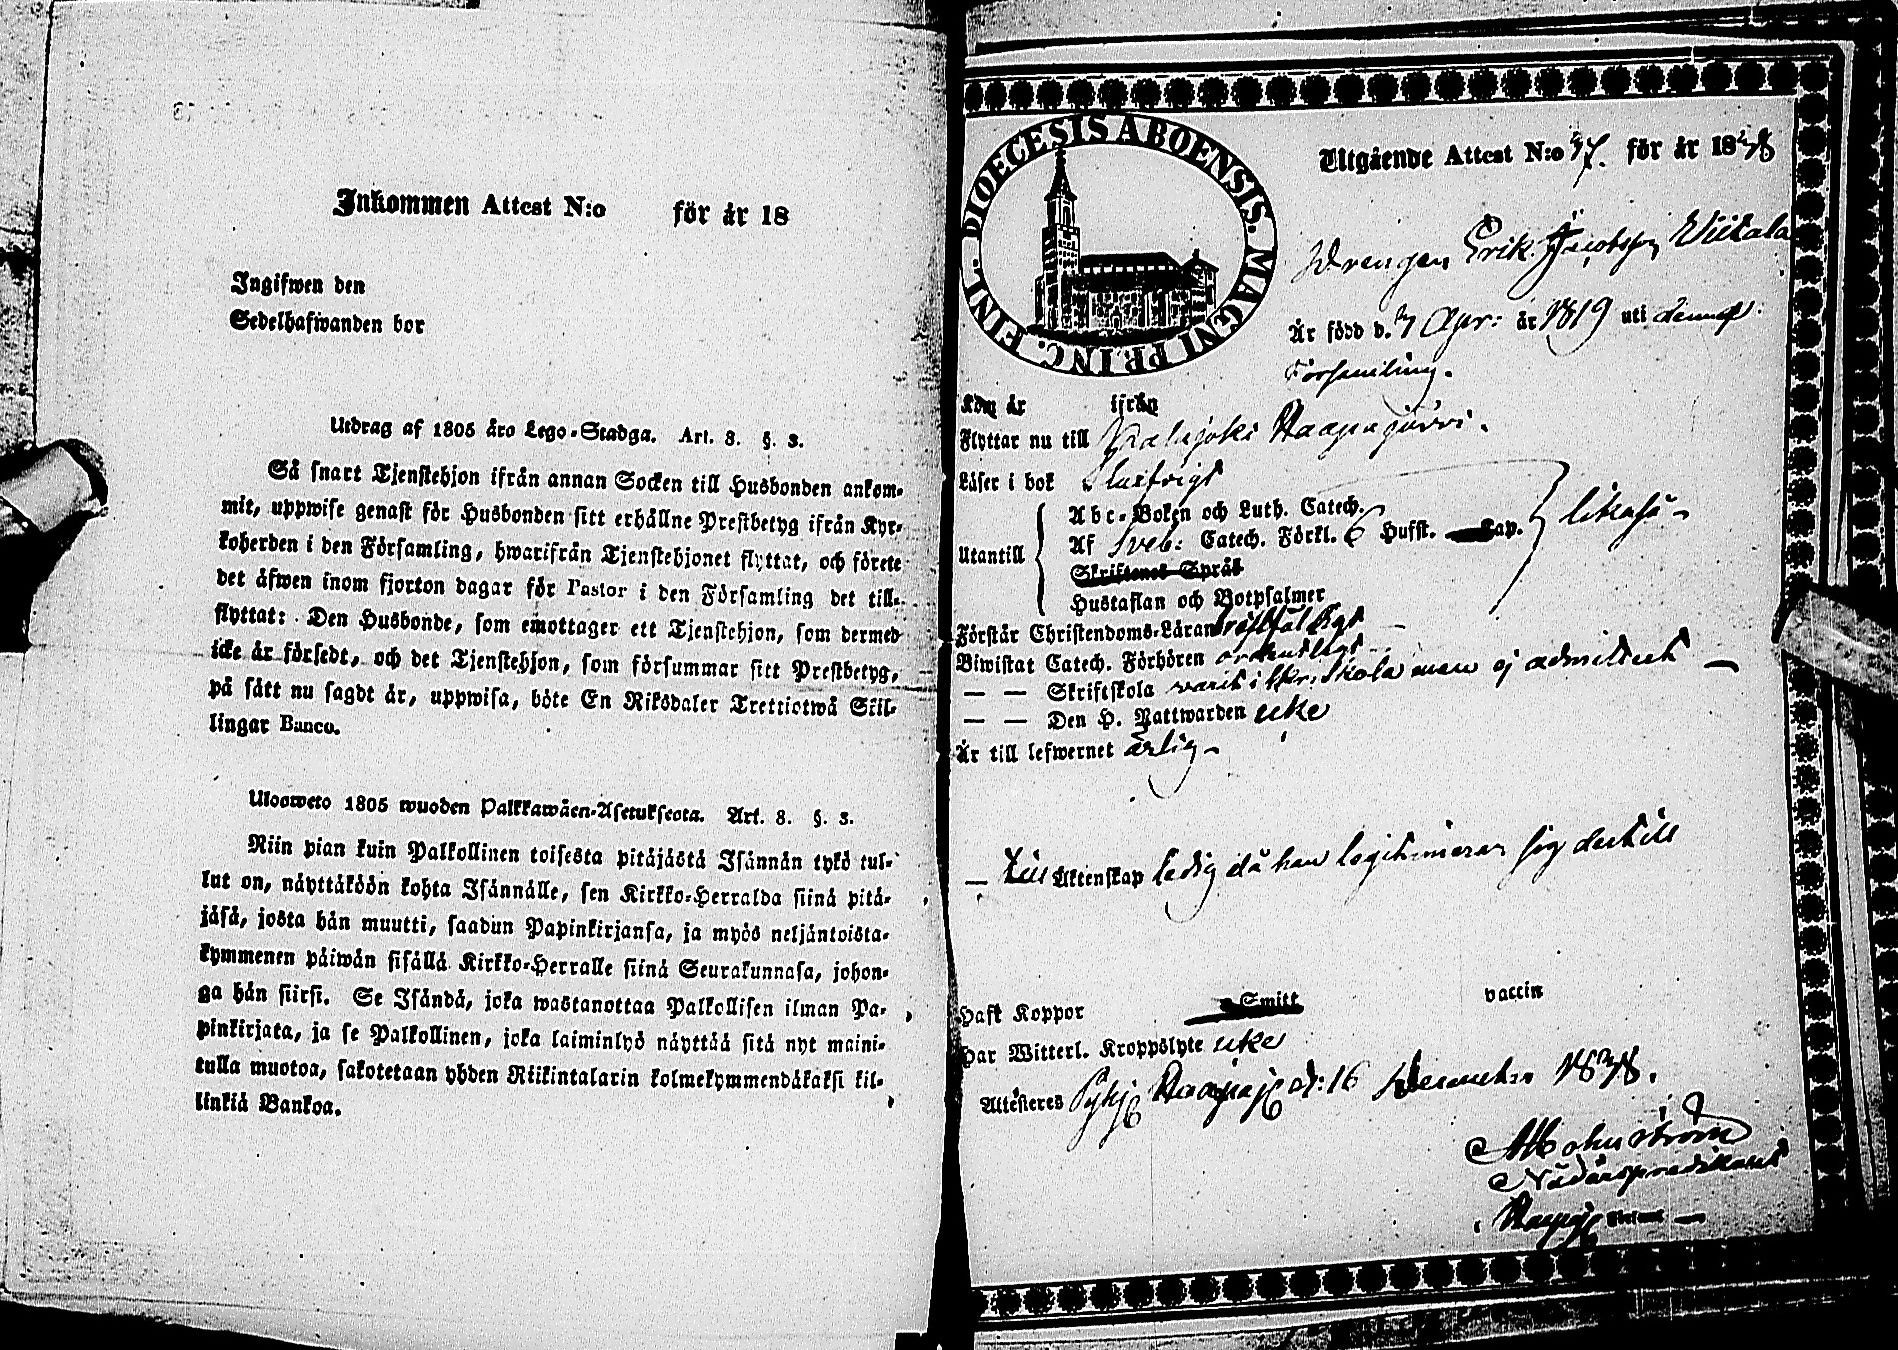 Inkommen Attest N:o för år 18
Ingifwen den
Sedelhafwanden bor
Utdrag af 1805 åro Lego-Stadga. Art. 8. §. 3.
Så snart Tjenstehjon ifrån annan Socken till Husbonden ankom-
mit, uppwise genast för Husbonden sitt erhållne Prestbetyg ifrån Kyr-
koherden i den Församling, hwarifrån Tjenstehjonet flyttat, och förete
det äfwen inom fjorton dagar för Pastor i den Församling det till-
flyttat: Den Husbonde, som emottager ett Tjenstehjon, som dermed
icke är försedt, och det Tjenstehjon, som försummar sitt Prestbetyg,
på sätt nu sagdt är, uppwisa, böte En Riksdaler Trettiotwå Skil-
lingar Banco.
Ulosweto 1805 wuoden Palkkawäen-Asetuksesta. Art. 8. §. 3.
Niin pian kuin Palkollinen toisesta pitäjästä Isännän tykö tul-
lut on, näyttäköön kohta Isännälle, sen Kirkko-Herralda siinä pitä-
jäsä, josta hän muutti, saadun Papinkirjansa, ja myös neljäntoista-
kymmenen päiwän sisällä Kirkko-Herralle siinä Seurakunnasa, johon-
ga hän siirsi. Se Isändä, joka wastanottaa Palkollisen ilman Pa-
pinkirjata, ja se Palkollinen, joka laiminlyö näyttää sitä nyt maini-
tulla muotoa, sakotetaan yhden Riikintalarin kolmekymmendäkaksi kil-
linkiä Bankoa.
DIOECESIS ABOENSIS. MAGNI PRINC. FINL.
Utgående Attest N:o 37. för år 1838
Drengen Erik Jacobsson Wiitala
Är född d. 7 Apr: år 1819 uti denna
Församling.
Kom år ifrån
Flyttar nu till Kalajoki Haapajärvi.
Läser i bok Slarfvigt
Abc-Boken och Luth. Catech.
Utantill Af Sveb: Catech. Förkl. 6 Hufst. Cap. likaså
Skriftenes Språk
Hustaflan och Botpsalmer
Förstår Christendoms-Läran
Biwistat Catech. Förhören ordentligt
— — Skriftskola varit i Skr. Skola men ej admittert —
— — Den H. Nattwarden icke
Är till lefwernet ärlig
— till Äktenskap ledig då han legitimerar sig dertill
Haft Koppor Smitt vaccin
Har Witterl. Kroppslyte icke
Attesteres Pyhj Haapaj d: 16 December 1838.
Nådårspredikant